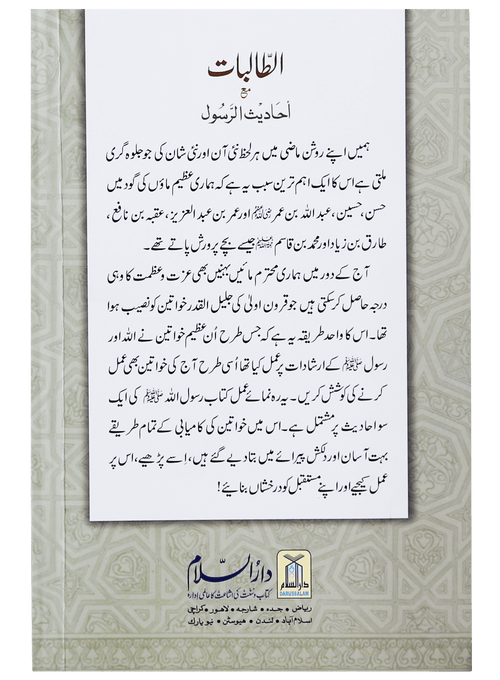 الطّالبات
مع
احادیث الرَّسُول
ہمیں اپنے روشن ماضی میں ہر لحظہ نئی آن اور نئی شان کی جو جلوہ گری
ملتی ہے اس کا ایک اہم ترین سبب یہ ہے کہ ہماری عظیم ماؤں کی گود میں
حسن، حسین، عبداللہ بن عمر رضی اللہ عنہم اور عمر بن عبدالعزیز، عقبہ بن نافع،
طارق بن زیاد اور محمد بن قاسم جیسے بچے پرورش پاتے تھے۔
آج کے دور میں ہماری محترم مائیں بہنیں بھی عزت و عظمت کا وہی
درجہ حاصل کر سکتی ہیں جو قرون اولیٰ کی جلیل القدر خواتین کو نصیب ہوا
تھا۔ اس کا واحد طریقہ یہ ہے کہ جس طرح اُن عظیم خواتین نے اللہ اور
رسول ﷺ کے ارشادات پر عمل کیا تھا اُسی طرح آج کی خواتین بھی عمل
کرنے کی کوشش کریں۔ یہ رہ نمائے عمل کتاب رسول اللہ ﷺ کی ایک
سو احادیث پر مشتمل ہے۔ اس میں خواتین کی کامیابی کے تمام طریقے
بہت آسان اور دلکش پیرائے میں بتا دیے گئے ہیں، اِسے پڑھیے، اس پر
عمل کیجیے اور اپنے مستقبل کو درخشاں بنائیے!
دارُالسّلام
کتاب و سنت کی اشاعت کا عالمی ادارہ
ریاض • جدہ • شارجہ • لاہور • کراچی
اسلام آباد • لندن • ہیوسٹن • نیویارک
دارالسلام
DARUSSALAM